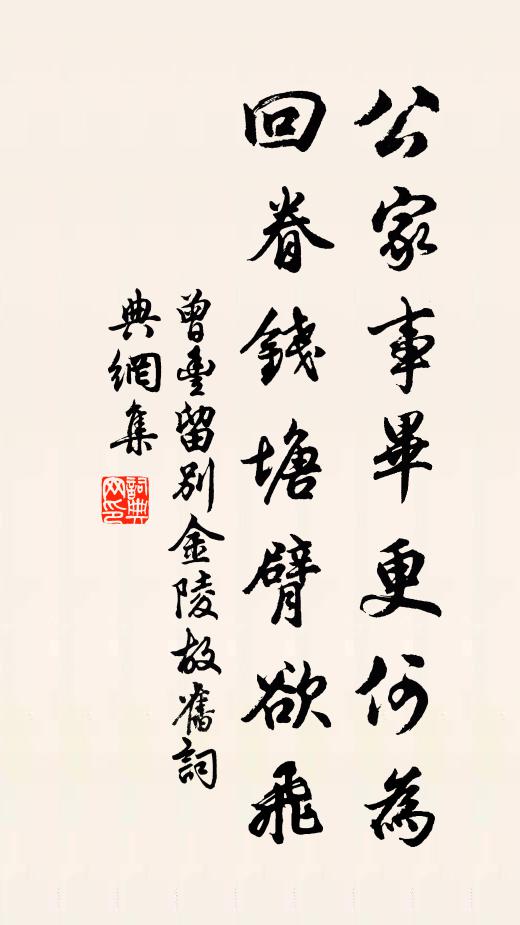 公家事畢更何為
回眷錢塘臂欲飛
曾豐留別金陵故舊詞
典網集
詞典
网印